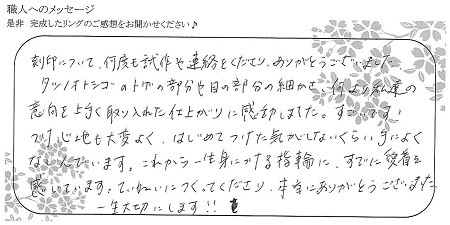 職人へのメッセージ
是非 完成したリングのご感想をお聞かせください♪
刻印について、何度も試作や連絡をくださり、ありがとうございました。
タツノオトシゴのトゲの部分や目の部分の細かさ、何より私達の
意向を上手く取り入れた仕上がりに感動しました。すごいです!
つけ心地も大変よく、はじめてつけた気がしないくらい手によく
なじんでいます。これから一生身につける指輪に、すでに愛着を
感じています。ていねいにつくってくださり、本当にありがとうございました
一生大切にします!!